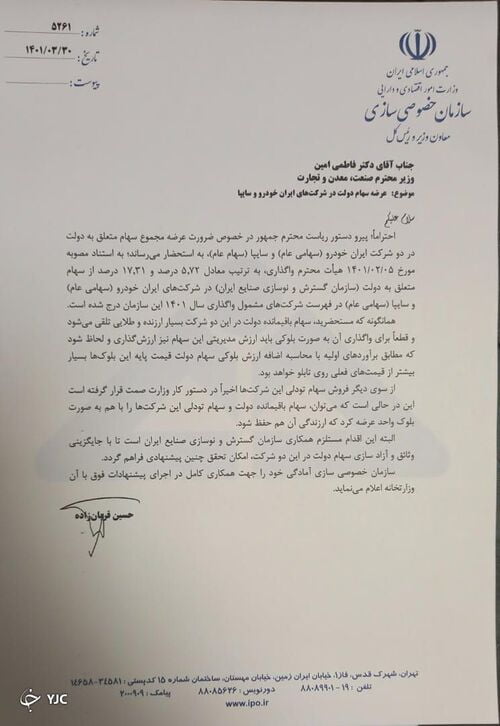 شماره: ۵۲۶۱
تاریخ: ۱۴۰۱/۰۳/۳۰
پیوست:
جمهوری اسلامی ایران
وزارت امور اقتصادی و دارایی
سازمان خصوصی سازی
معاون وزیر و رئیس کل
جناب آقای دکتر فاطمی امین
وزیر محترم صنعت، معدن و تجارت
موضوع: عرضه سهام دولت در شرکت‌های ایران خودرو و سایپا
سلام علیکم
احتراماً؛ پیرو دستور ریاست محترم جمهور در خصوص ضرورت عرضه مجموع سهام متعلق به دولت
در دو شرکت ایران خودرو (سهامی عام) و سایپا (سهامی عام)، به استحضار می‌رساند؛ به استناد مصوبه
مورخ ۱۴۰۱/۰۲/۰۵ هیأت محترم واگذاری، به ترتیب معادل ۵٫۷۲ درصد و ۱۷٫۳۱ درصد از سهام
متعلق به دولت (سازمان گسترش و نوسازی صنایع ایران) در شرکت‌های ایران خودرو (سهامی عام)
و سایپا (سهامی عام) در فهرست شرکت‌های مشمول واگذاری سال ۱۴۰۱ این سازمان درج شده است.
همانگونه که مستحضرید، سهام باقیمانده دولت در این دو شرکت بسیار ارزنده و طلایی تلقی می‌شود
و قطعاً برای واگذاری آن به صورت بلوکی باید ارزش مدیریتی این سهام نیز ارزش‌گذاری و لحاظ شود
که مطابق برآوردهای اولیه با محاسبه اضافه ارزش بلوکی سهام دولت قیمت پایه این بلوک‌ها بسیار
بیشتر از قیمت‌های فعلی روی تابلو خواهد بود.
از سوی دیگر فروش سهام تودلی این شرکت‌ها اخیراً در دستور کار وزارت صمت قرار گرفته است
این در حالی است که می‌توان، سهام باقیمانده دولت و سهام تودلی این شرکت‌ها را با هم به صورت
بلوک واحد عرضه کرد که ارزندگی آن هم حفظ شود.
البته این اقدام مستلزم همکاری سازمان گسترش و نوسازی صنایع ایران است تا با جایگزینی
وثائق و آزاد سازی سهام دولت در این دو شرکت، امکان تحقق چنین پیشنهادی فراهم گردد.
سازمان خصوصی سازی آمادگی خود را جهت همکاری کامل در اجرای پیشنهادات فوق با آن
وزارتخانه اعلام می‌نماید.
حسین قربان‌زاده
تهران، شهرک قدس، فاز۱، خیابان ایران زمین، خیابان مهستان، ساختمان شماره ۱۵ کدپستی: ۳۴۵۸۱-۱۴۶۵۸
تلفن: ۱۹-۸۸۰۸۹۹۰۱ دورنویس: ۸۸۰۸۵۶۲۶ پیامک: ۲۰۰۰۹۰۹
www.ipo.ir
YJC